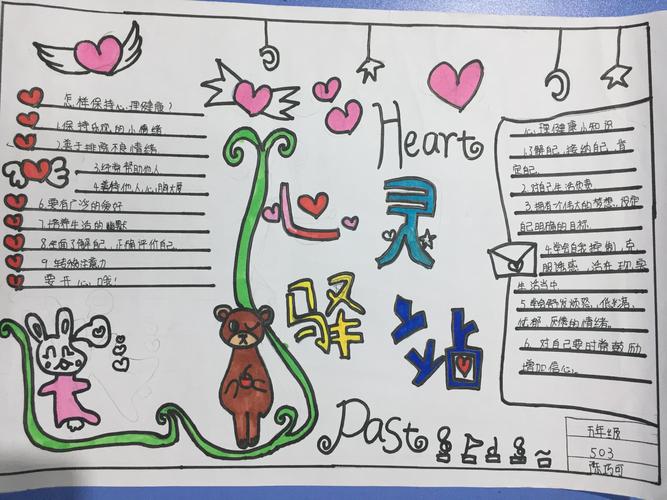 怎样保持心理健康?
1.保持乐观的小情绪
2.善于排解不良情绪
3.经常帮助他人
4.善待他人,心胸大度
6.要有广泛的爱好
7.培养生活的幽默
8.全面了解自己,正确评价自己.
9.转移注意力
要开心哦!
Heart
心灵
驿站
Past
心理健康小知识
1.了解自己,接纳自己,肯
定自己.
2.对自己生活负责
3.拥有个伟大的梦想,设定
自己明确的目标.
4.学会自我控制,克
服诱惑,活在现实
生活当中
5.学会舒发烦恼,低落,
忧郁,厌倦的情绪.
6.对自己要时常鼓励
增加信心.
五年级
503
陈巧可